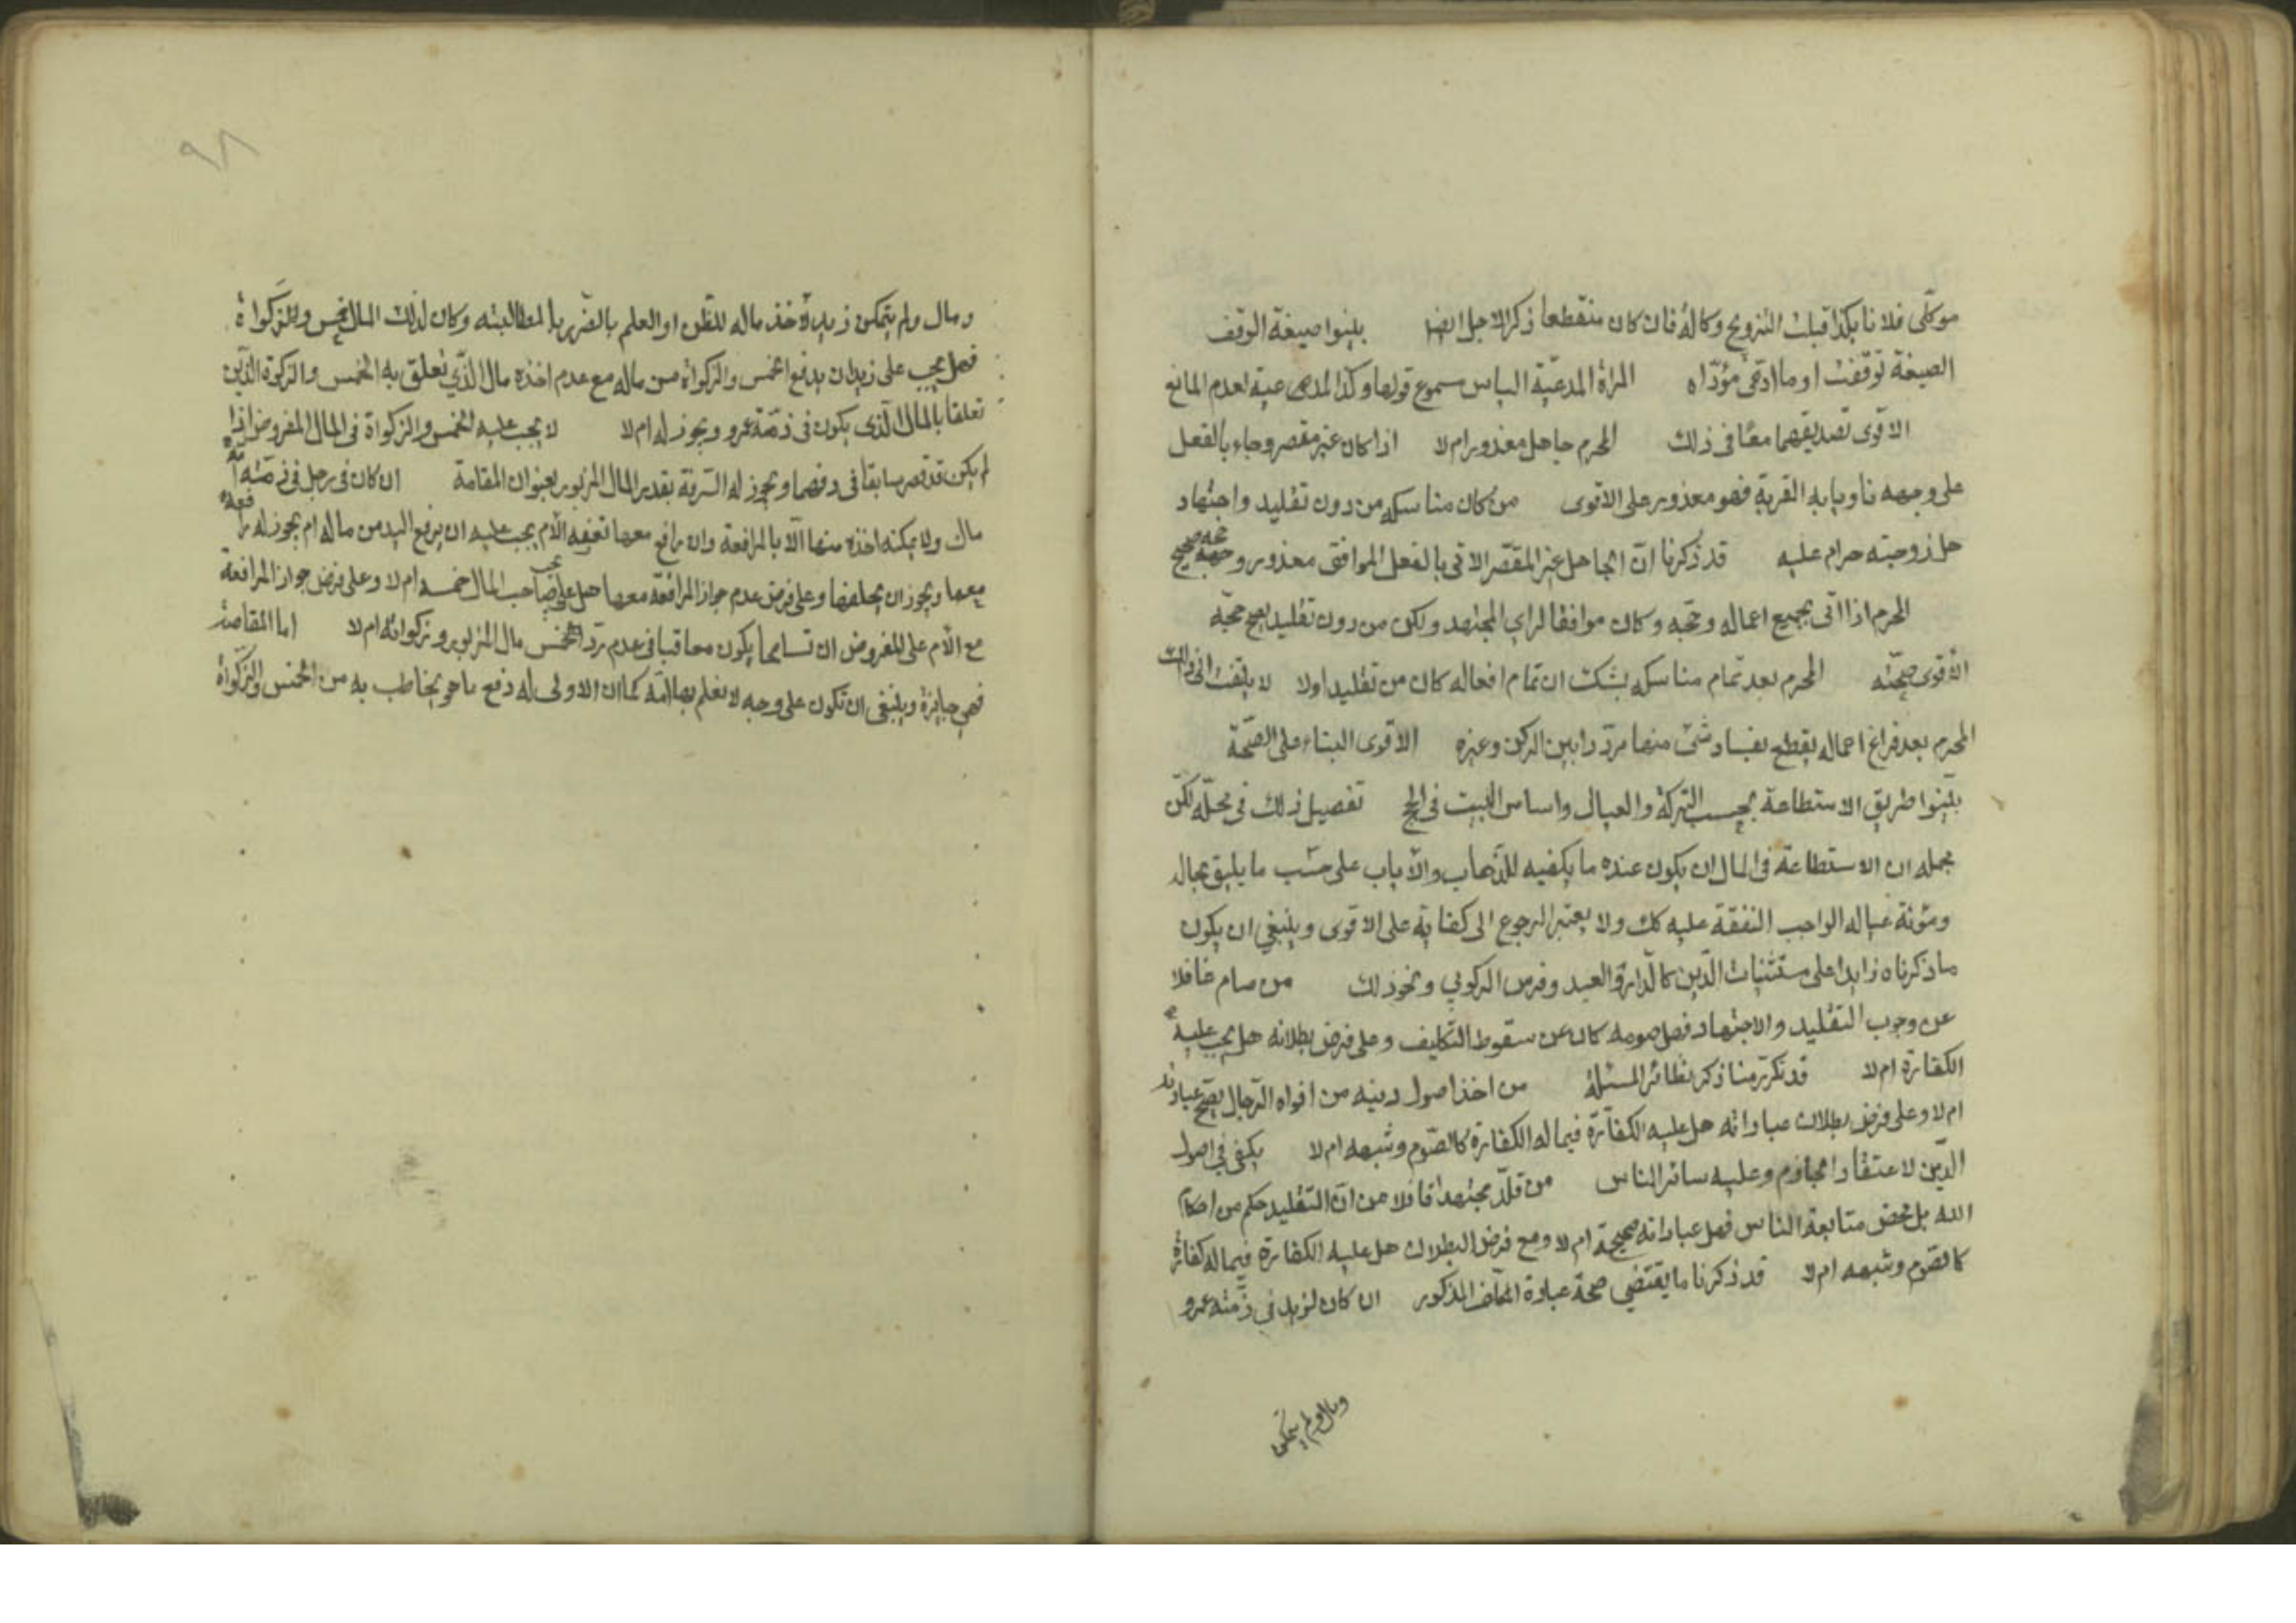 موكلى فلانا بكذا قبلت التزويج وكالة فان كان منقطعا ذكر الاجل ايضا بينوا صيغة الوقف
الصيغة توقفت او ما ادى مؤداه المراة المدعية الياس مسموع قولها وكذا المدعية لعدم المانع
الاقوى تصديقهما معا فى ذلك المحرم جاهل معذور ام لا اذا كان غير مقصر وجاء بالفعل
على وجهه ناويا به القربة فهو معذور على الاقوى من كان مناسكه من دون تقليد واجتهاد
هل زوجته حرام عليه قد ذكرنا ان الجاهل غير المقصر الاتى بالفعل الموافق معذور وحجه صحيح
المحرم اذا اتى بجميع اعماله وحجه وكان موافقا لراى المجتهد ولكن من دون تقليد يصح حجه
الاقوى صحته المحرم بعد تمام مناسكه يشك ان تمام افعاله كان من تقليد اولا لا يلتفت الى ذلك
المحرم بعد فراغ اعماله يقطع بفساد شئ منها مرددا بين الركن وغيره الاقوى البناء على الصحة
بينوا طريق الاستطاعة بحسب التركة والعيال واساس البيت فى الحج تفصيل ذلك فى محله لكن
مجمله ان الاستطاعة فى المال ان يكون عنده ما يكفيه للذهاب والاياب على حسب ما يليق بحاله
ومئونة عياله الواجب النفقة عليه كك ولا يعتبر الرجوع الى كفاية على الاقوى وينبغي ان يكون
ما ذكرناه زايدا على مستثنيات الدين كالدار والعبد وفرس الركوب ونحو ذلك من صام غافلا
عن وجوب التقليد والاجتهاد فهل صومه كان عن سقوط التكليف وعلى فرض بطلانه هل يجب عليه
الكفارة ام لا قد تكرر منا ذكر نظائر المسئلة من اخذ اصول دينه من افواه الرجال يصح عباداته
ام لا وعلى فرض بطلان عباداته هل عليه الكفارة فيما له الكفارة كالصوم وشبهه ام لا يكفى في اصول
الدين الاعتقاد الجازم وعليه سائر الناس من قلد مجتهدا غافلا عن ان التقليد حكم من احكام
الله بل محض متابعة الناس فهل عباداته صحيحة ام لا ومع فرض البطلان هل عليه الكفارة فيما له كفارة
كالصوم وشبهه ام لا قد ذكرنا ما يقتضي صحة عبادة المكلف المذكور ان كان لزيد في ذمته عمرو
ومال ولم يتمكن
٩٨
ومال ولم يتمكن زيد لاخذ ماله للظن او العلم بالضرر بالمطالبته وكان لذلك المال خمس وللزكواة
فهل يجب على زيد ان يدفع الخمس والزكواة من ماله مع عدم اخذه مال الذي تعلق به الخمس والزكوة الذين
تعلقا بالمال الذى يكون فى ذمة عمرو ويجوز له ام لا لا يجب عليه الخمس والزكواة فى المال المفروض اذا
لم يكن قد قصر سابقا فى دفعهما ويجوز له السرقة بقدر المال المزبور بعنوان المقاصة ان كان فى رجل فى ذمته امه
مال ولا يمكنه اخذه منها الا بالمرافعة وان رافع معها تعفيه الام يجب عليه ان يرفع اليد من ماله ام يجوز له رافعه
معها ويجوز ان يحلفها وعلى فرض عدم جواز المرافعة معها هل يجب على صاحب المال خمسه ام لا وعلى فرض جواز المرافعة
مع الام على المفروض ان تسامحا يكون معاقبا فى عدم رد الخمس مال المزبور وزكواته ام لا اما المقاصة
فهى جايزة وينبغى ان تكون على وجه لا تعلم بها امه كما ان الاولى له دفع ما هو يخاطب به من الخمس والزكواة